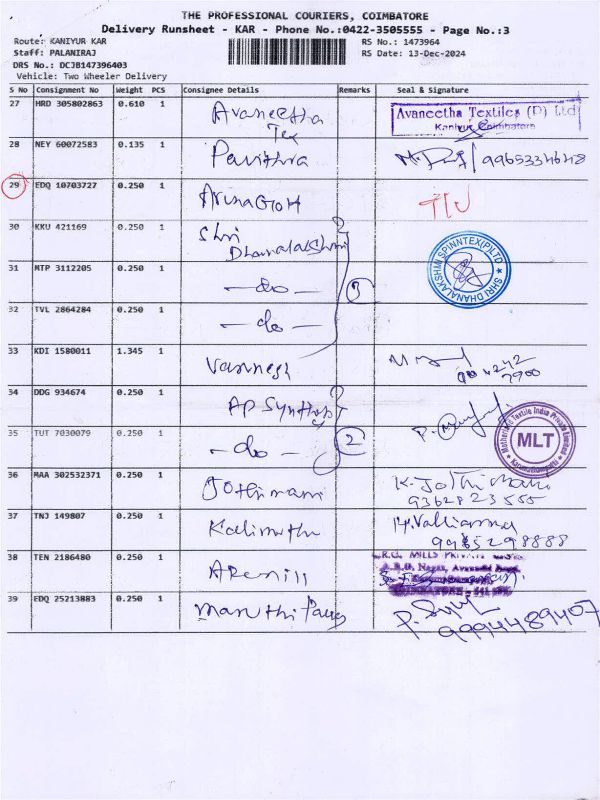 THE PROFESSIONAL COURIERS, COIMBATORE
Delivery Runsheet - KAR - Phone No.:0422-3505555 - Page No.:3
Route: KANIYUR KAR RS No.: 1473964
Staff: PALANIRAJ RS Date: 13-Dec-2024
DRS No.: DCJB147396403
Vehicle: Two Wheeler Delivery
S No Consignment No Weight PCS Consignee Details Remarks Seal & Signature
27 HRD 305802863 0.610 1 Avaneetha Tex Avaneetha Textiles (P) Ltd
Kaniyur Coimbatore
28 NEY 60072583 0.135 1 Pavithra
29 EDQ 10703727 0.250 1
30 KKU 421169 0.250 1 Shri Dhanalakshmi SHRI DHANALAKSHMI SPINNTEX(P)LTD
31 MTP 3112205 0.250 1 -do- 3
32 TVL 2864284 0.250 1 -do-
33 KDI 1580011 1.345 1
34 DDG 934674 0.250 1 AP Synthe
35 TUT 7030079 0.250 1 -do- 2 MLT
Motherland Textile India Private Limited
36 MAA 302532371 0.250 1 Jothimani K. Jothimani
9362823555
37 TNJ 149807 0.250 1 Kalimuthu
9965298888
38 TEN 2186480 0.250 1 MILLS PRIVATE
39 EDQ 25213883 0.250 1 Maruthi
9994489407